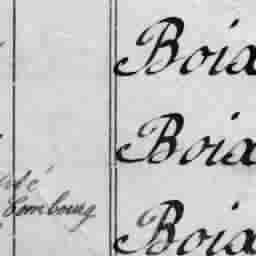 Boix
Boix
Combourg
Boix